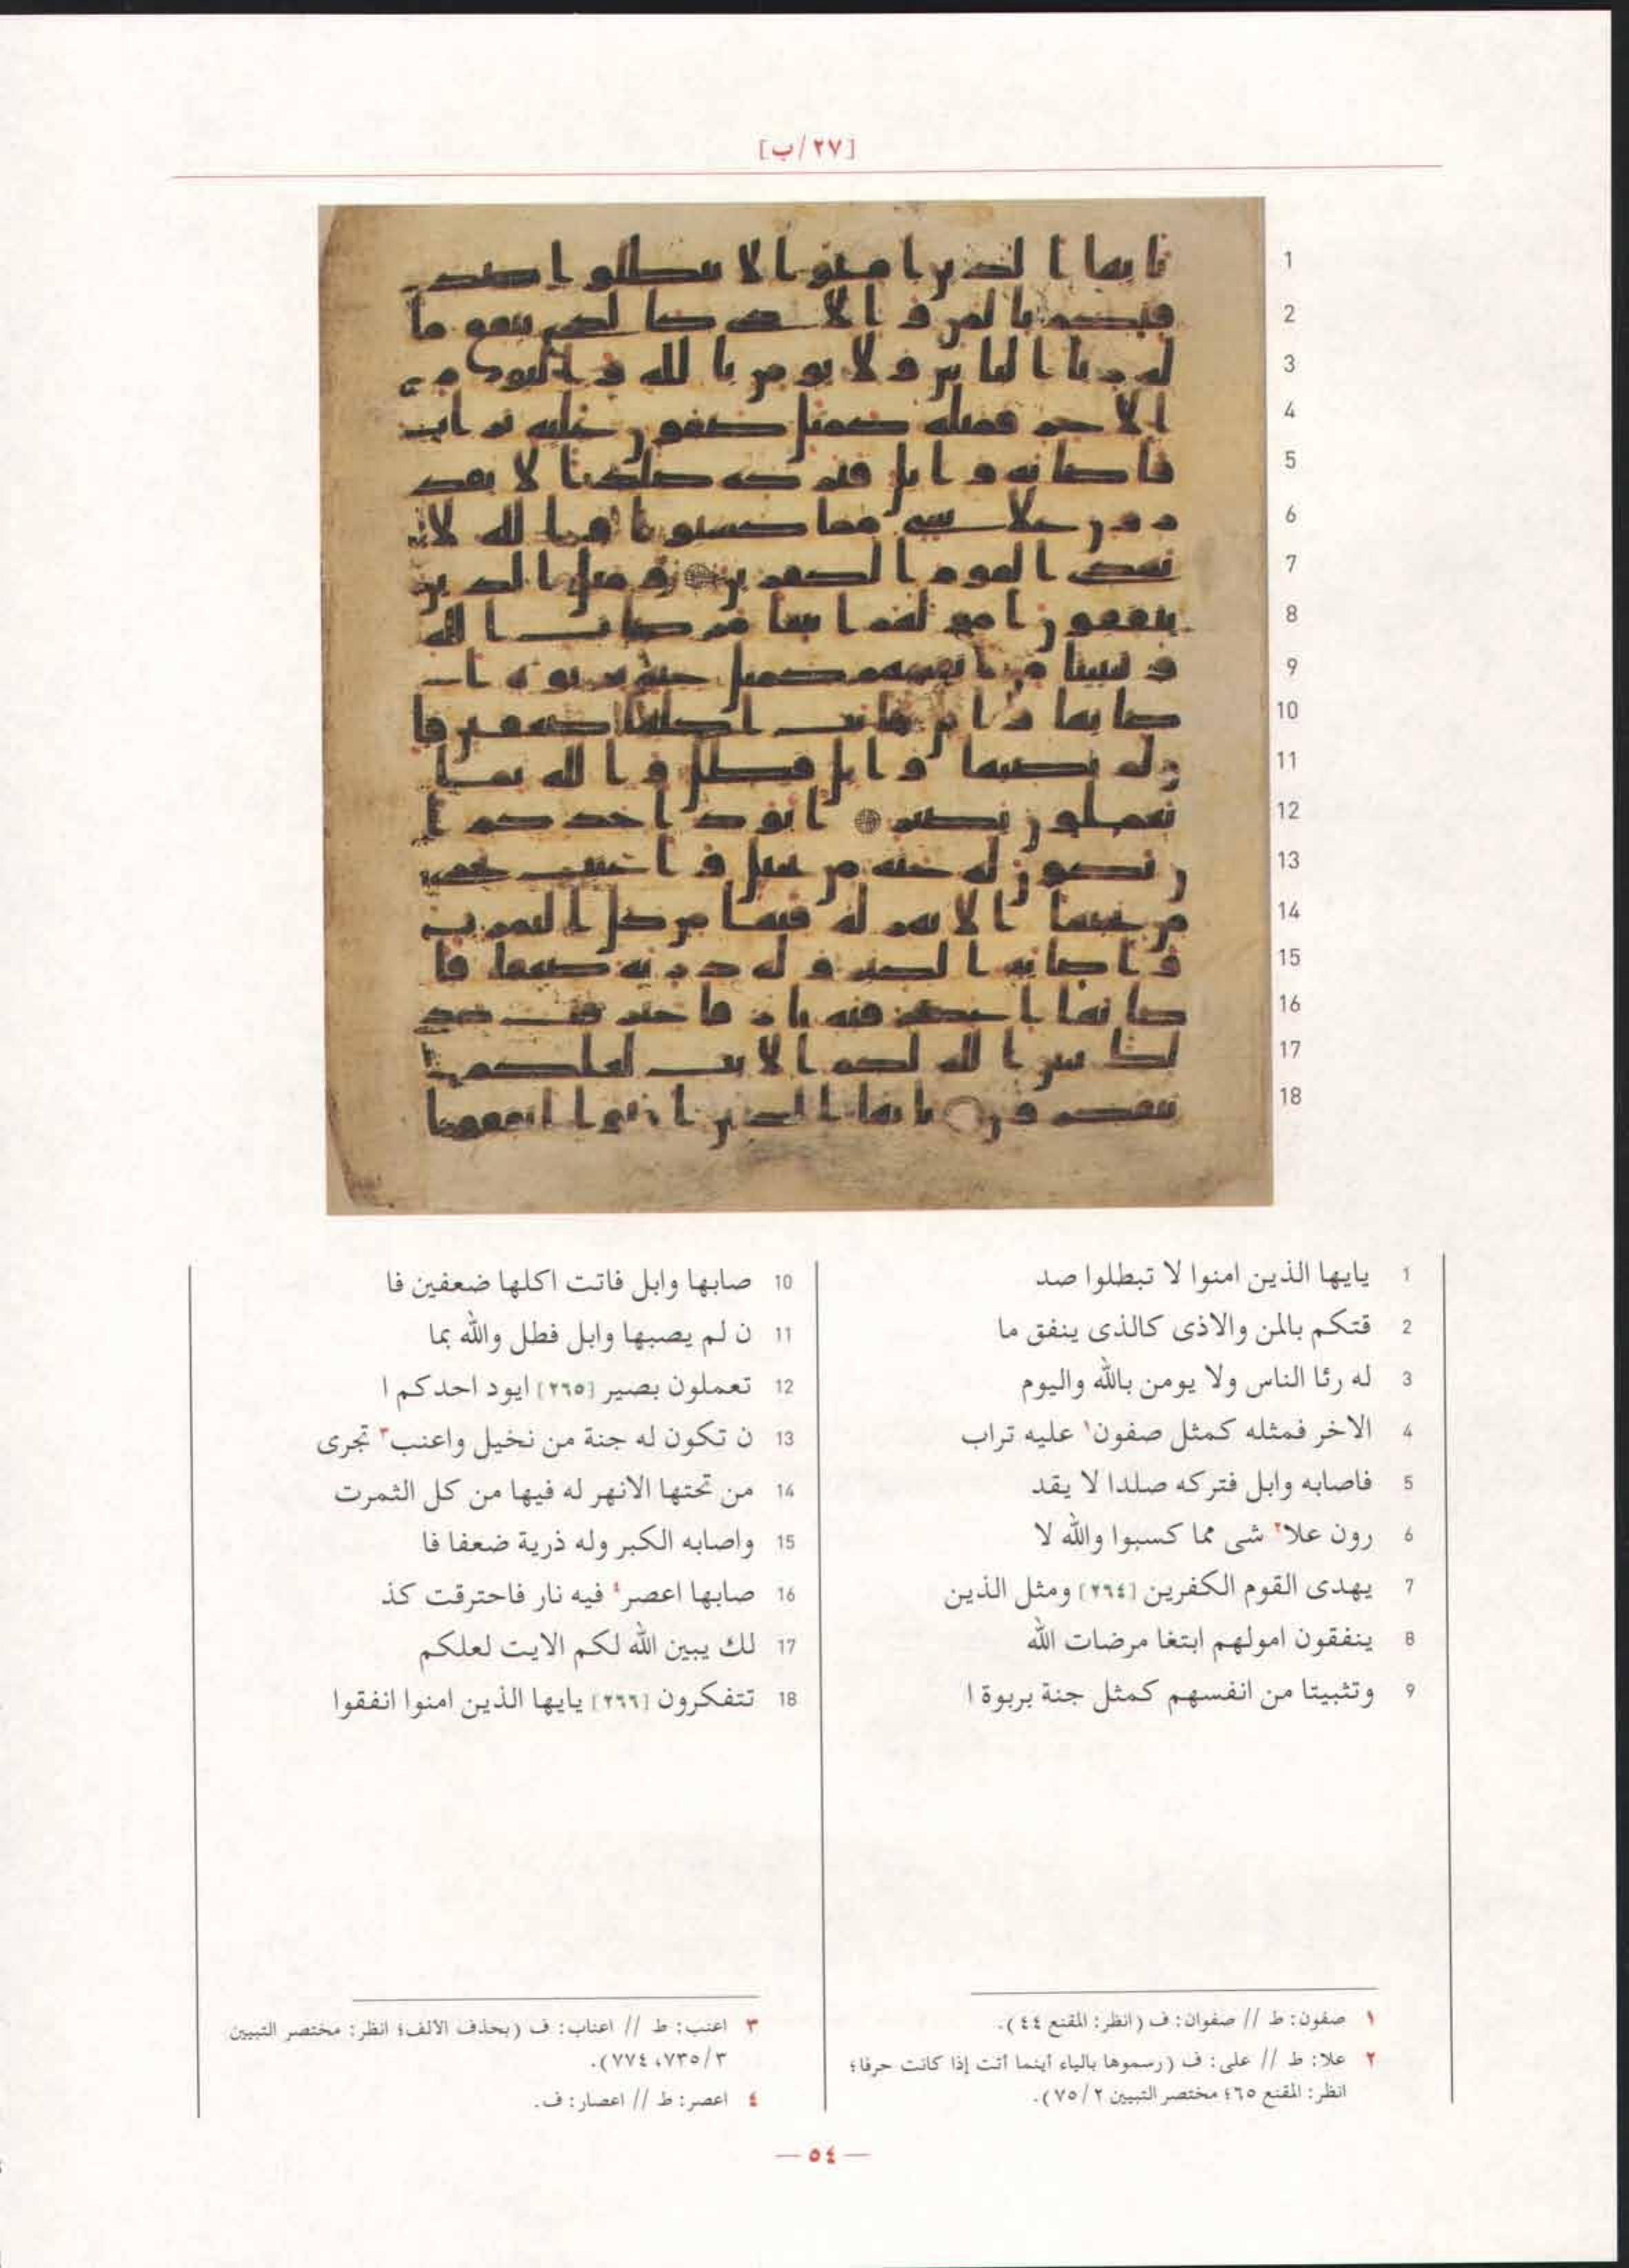 [٢٧/ب]
1 يايها الذين امنوا لا تبطلوا صد
2 قتكم بالمن والاذى كالذى ينفق ما
3 له رئا الناس ولا يومن بالله واليوم
4 الاخر فمثله كمثل صفون١ عليه تراب
5 فاصابه وابل فتركه صلدا لا يقد
6 رون علا٢ شى مما كسبوا والله لا
7 يهدى القوم الكفرين [٢٦٤] ومثل الذين
8 ينفقون امولهم ابتغا مرضات الله
9 وتثبيتا من انفسهم كمثل جنة بربوة ا
10 صابها وابل فاتت اكلها ضعفين فا
11 ن لم يصبها وابل فطل والله بما
12 تعملون بصير [٢٦٥] ايود احدكم ا
13 ن تكون له جنة من نخيل واعنب٣ تجرى
14 من تحتها الانهر له فيها من كل الثمرت
15 واصابه الكبر وله ذرية ضعفا فا
16 صابها اعصر٤ فيه نار فاحترقت كذ
17 لك يبين الله لكم الايت لعلكم
18 تتفكرون [٢٦٦] يايها الذين امنوا انفقوا
١ صفون: ط // صفوان: ف (انظر: المقنع ٤٤).
٢ علا: ط // على: ف (رسموها بالياء أينما أتت إذا كانت حرفا؛
انظر: المقنع ٦٥؛ مختصر التبيين ٢/ ٧٥).
٣ اعنب: ط // اعناب: ف (بحذف الالف؛ انظر: مختصر التبيين
٣/ ٧٣٥، ٧٧٤).
٤ اعصر: ط // اعصار: ف.
— ٥٤ —